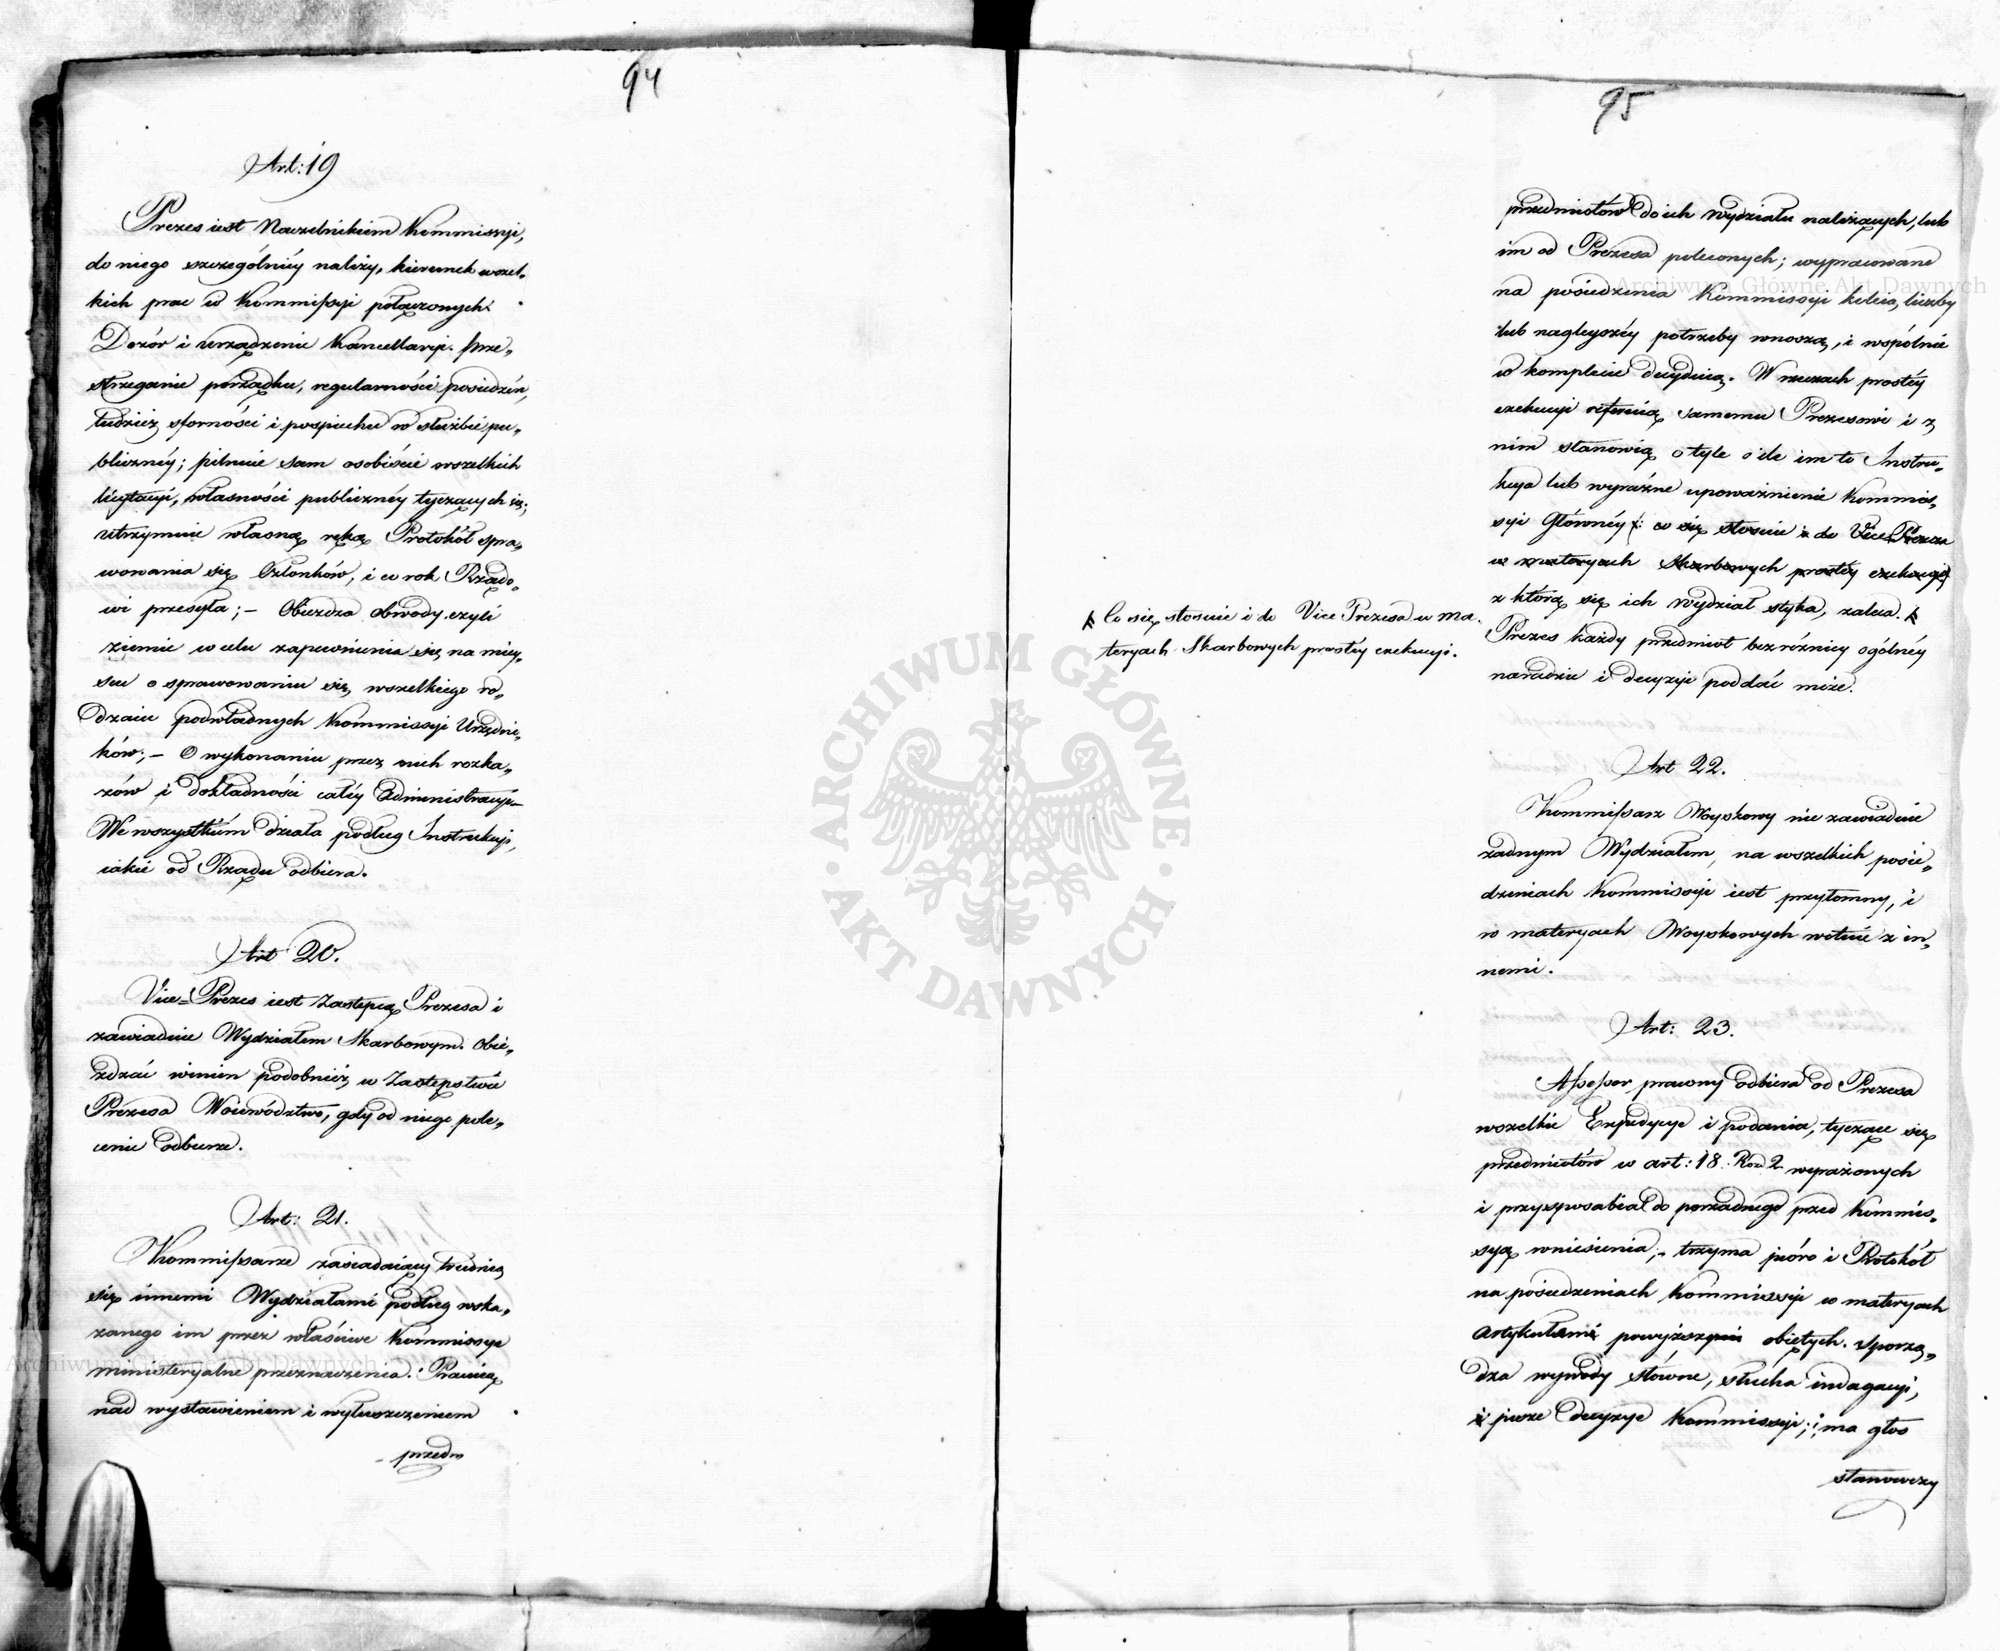 94
Art: 19
Prezes iest Naczelnikiem Kommissyi,
do niego szczególniéy należy, kierunek wszel-
kich prac w Kommissyi połączonych.
Dozór i urządzenie Kancellaryi. prze-
strzeganie porządku, regularności posiedzeń,
tudzież sforności i pospiechu w służbie pu-
bliczney; pilnuie sam osobiście wszelkich
licytacyi, własności publicznéy tyczących się;
utrzymuie własną ręką Protokół spra-
wowania się Członków, i co rok Rządo-
wi przesyła; – Obieżdza obwody czyli
ziemie w celu zapewnienia się na miey-
scu o sprawowaniu się wszelkiego ro-
dzaiu podwładnych Kommissyi Urzędni-
ków; – O wykonaniu przez nich rozka-
zów i dokładności całéy Administracyi –
We wszystkiém działa podług Instrukcyi,
iakie od Rządu odbiera.
Art 20.
Vice-Prezes iest Zastępcą Prezesa i
zawiaduie Wydziałem Skarbowym. Obie-
żdzać winien podobnież w Zastępstwie
Prezesa Woiewództwo, gdy od niego pole-
cenie odbierze.
Art: 21.
Kommissarze zasiadaiący trudnią
się innemi Wydziałami podług wska-
zanego im przez właściwe Kommissye
ministeryalne przeznaczenia. Pracuią
nad wystawieniem i wyłuszczeniem
przedm
95
przedmiotów do ich Wydziału należących, lub
im od Prezesa poleconych; wypracowane
na posiedzenia Kommissyi koleią, liczby
lub nagleyszéy potrzeby wnoszą, i wspólnie
w komplecie decyduią. W rzeczach prostéy
exekucyi referuią samemu Prezesowi i z
nim stanowią o tyle o ile im to Instru-
kcya lub wyraźne upoważnienie Kommis-
syi Głównéy /: co się stosuie i do Vice Prezesa
w materyach Skarbowych prostéy exekucyi
z którą się ich Wydział styka, zaleca.
Prezes każdy przedmiot bez różnicy ogólnéy
naradzie i decyzyi poddać może.
Co się stosuie i do Vice Prezesa w Ma-
teryach Skarbowych prostéy exekucyi.
Art 22.
Kommissarz Woyskowy nie zawiaduie
żadnym Wydziałem, na wszelkich posie-
dzeniach Kommissyi iest przytomny, i
w materyach Woyskowych wotuie z in-
nemi.
Art: 23.
Assessor prawny odbiera od Prezesa
wszelkie Expedycye i podania, tyczące się
przedmiotów w art: 18. Roz 2 wyrażonych
i przysposabia do porządnego przed Kommis-
syą wniesienia, – trzyma pióro i Protokół
na posiedzeniach Kommissyi w materyach
Artykułami powyższymi obiętych. Sporzą-
dza wywody słowne, słucha indagacyi,
i pisze decyzye Kommissyi; i ma głos
stanowczy
ARCHIWUM GŁÓWNE AKT DAWNYCH
Archiwum Główne Akt Dawnych
Archiwum Główne Akt Dawnych